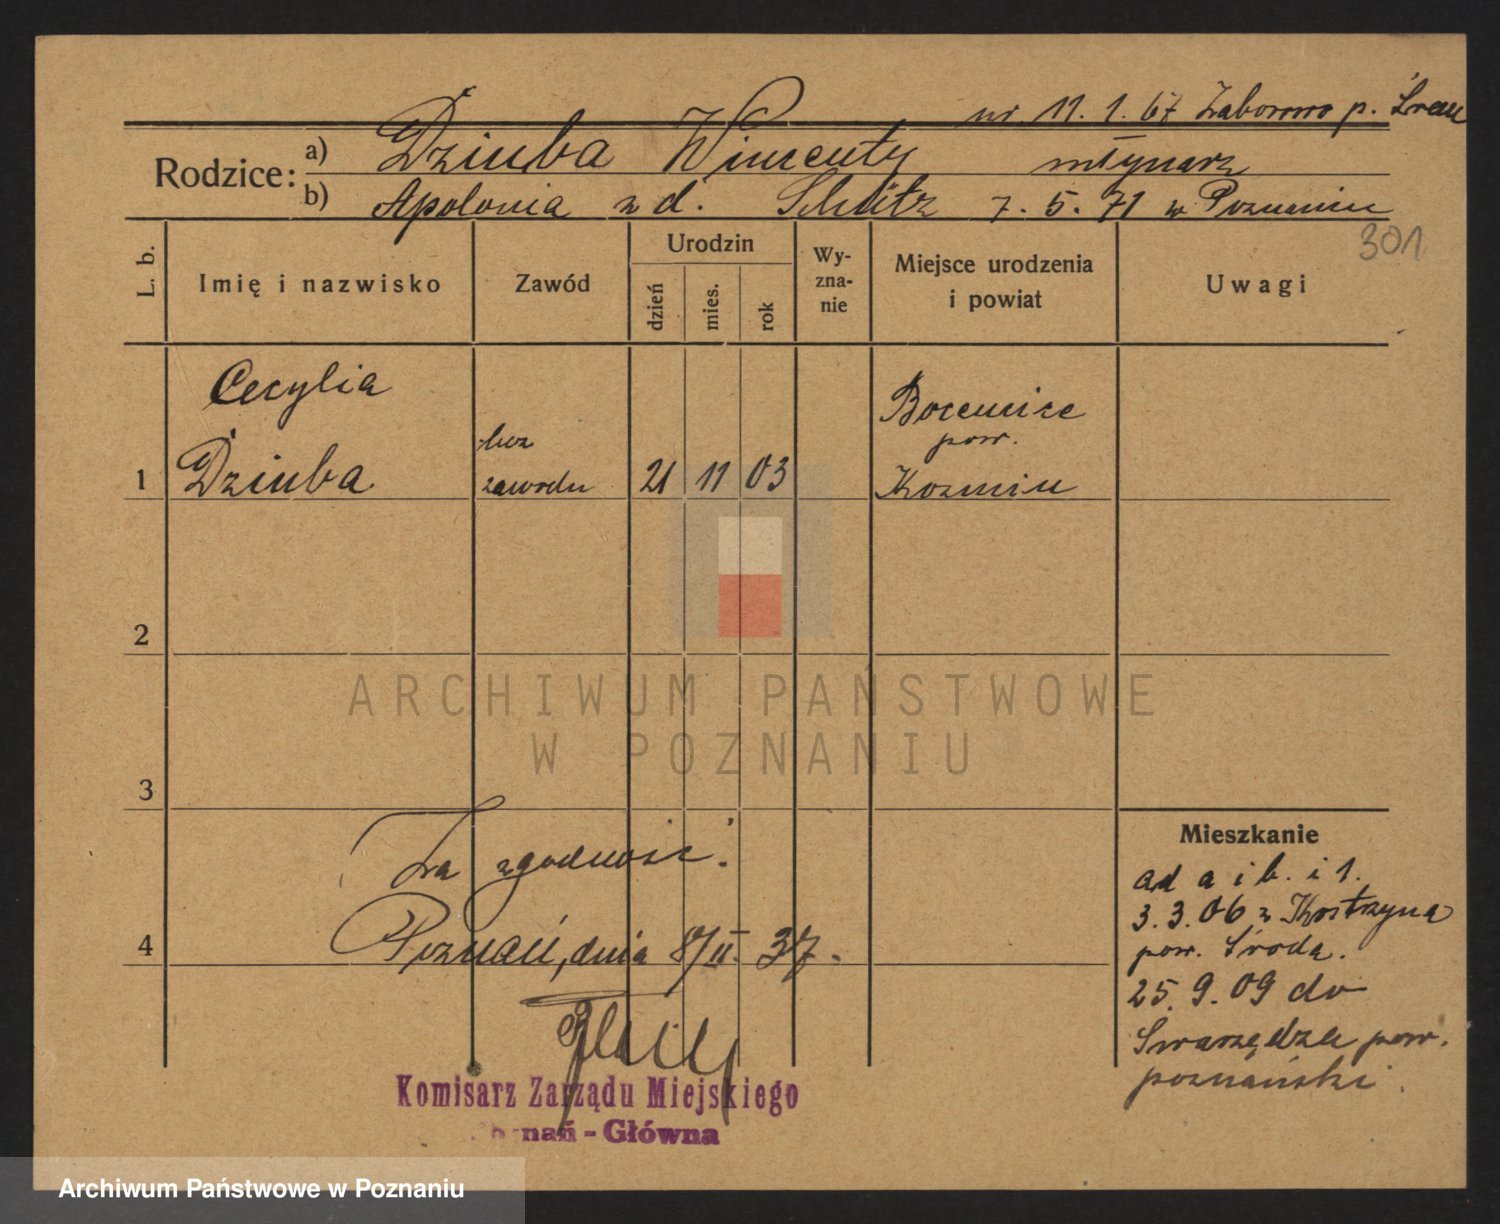 ur 11.1.67 Zaborowo p. Śrem
Rodzice:
a) Dziuba Wincenty młynarz
b) Apolonia z d. Schütz 7.5.71 w Poznaniu
301
L. b.
Imię i nazwisko
Zawód
Urodzin
dzień
mies.
rok
Wy-
zna-
nie
Miejsce urodzenia
i powiat
Uwagi
Cecylia
1 Dziuba
bez
zawodu
21 11 03
pow.
Kozmin
2
3
4
Za zgodność:
Poznań, dnia 8/II. 37.
Komisarz Zarządu Miejskiego
Poznań-Główna
Mieszkanie
ad a i b. i 1.
3.3.06 z Kostrzyna
pow. Środa.
25.9.09 do
Swarzędza pow.
poznański.
ARCHIWUM PAŃSTWOWE
W POZNANIU
Archiwum Państwowe w Poznaniu